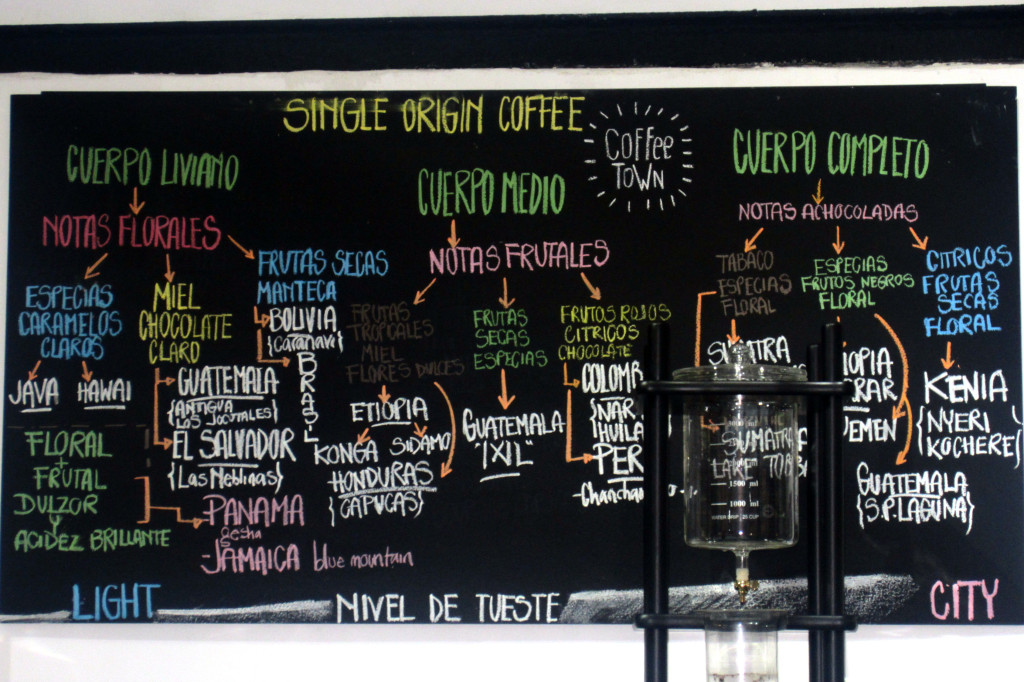 SINGLE ORIGIN COFFEE
COFFEE
TOWN
CUERPO LIVIANO
NOTAS FLORALES
ESPECIAS
CARAMELOS
CLAROS
JAVA HAWAI
MIEL
CHOCOLATE
CLARO
GUATEMALA
{ANTIGUA
LOS JOCOTALES}
EL SALVADOR
{Las Neblinas}
FRUTAS SECAS
MANTECA
BOLIVIA
{Caranavi}
BRASIL
FLORAL
+
FRUTAL
DULZOR
Y
ACIDEZ BRILLANTE
-PANAMA
gesha
-JAMAICA blue mountain
CUERPO MEDIO
NOTAS FRUTALES
FRUTAS
TROPICALES
MIEL
FLORES DULCES
ETIOPIA
KONGA SIDAMO
HONDURAS
{CAPUCAS}
FRUTAS
SECAS
ESPECIAS
GUATEMALA
"IXIL"
FRUTOS ROJOS
CITRICOS
CHOCOLATE
CUERPO COMPLETO
NOTAS ACHOCOLADAS
TABACO
ESPECIAS
FLORAL
SUMATRA
ESPECIAS
FRUTOS NEGROS
FLORAL
GUATEMALA
{S.P. LAGUNA}
CITRICOS
FRUTAS
SECAS
FLORAL
KENIA
{NYERI
KOCHERE}
1500 ml
1000 ml
LIGHT NIVEL DE TUESTE CITY